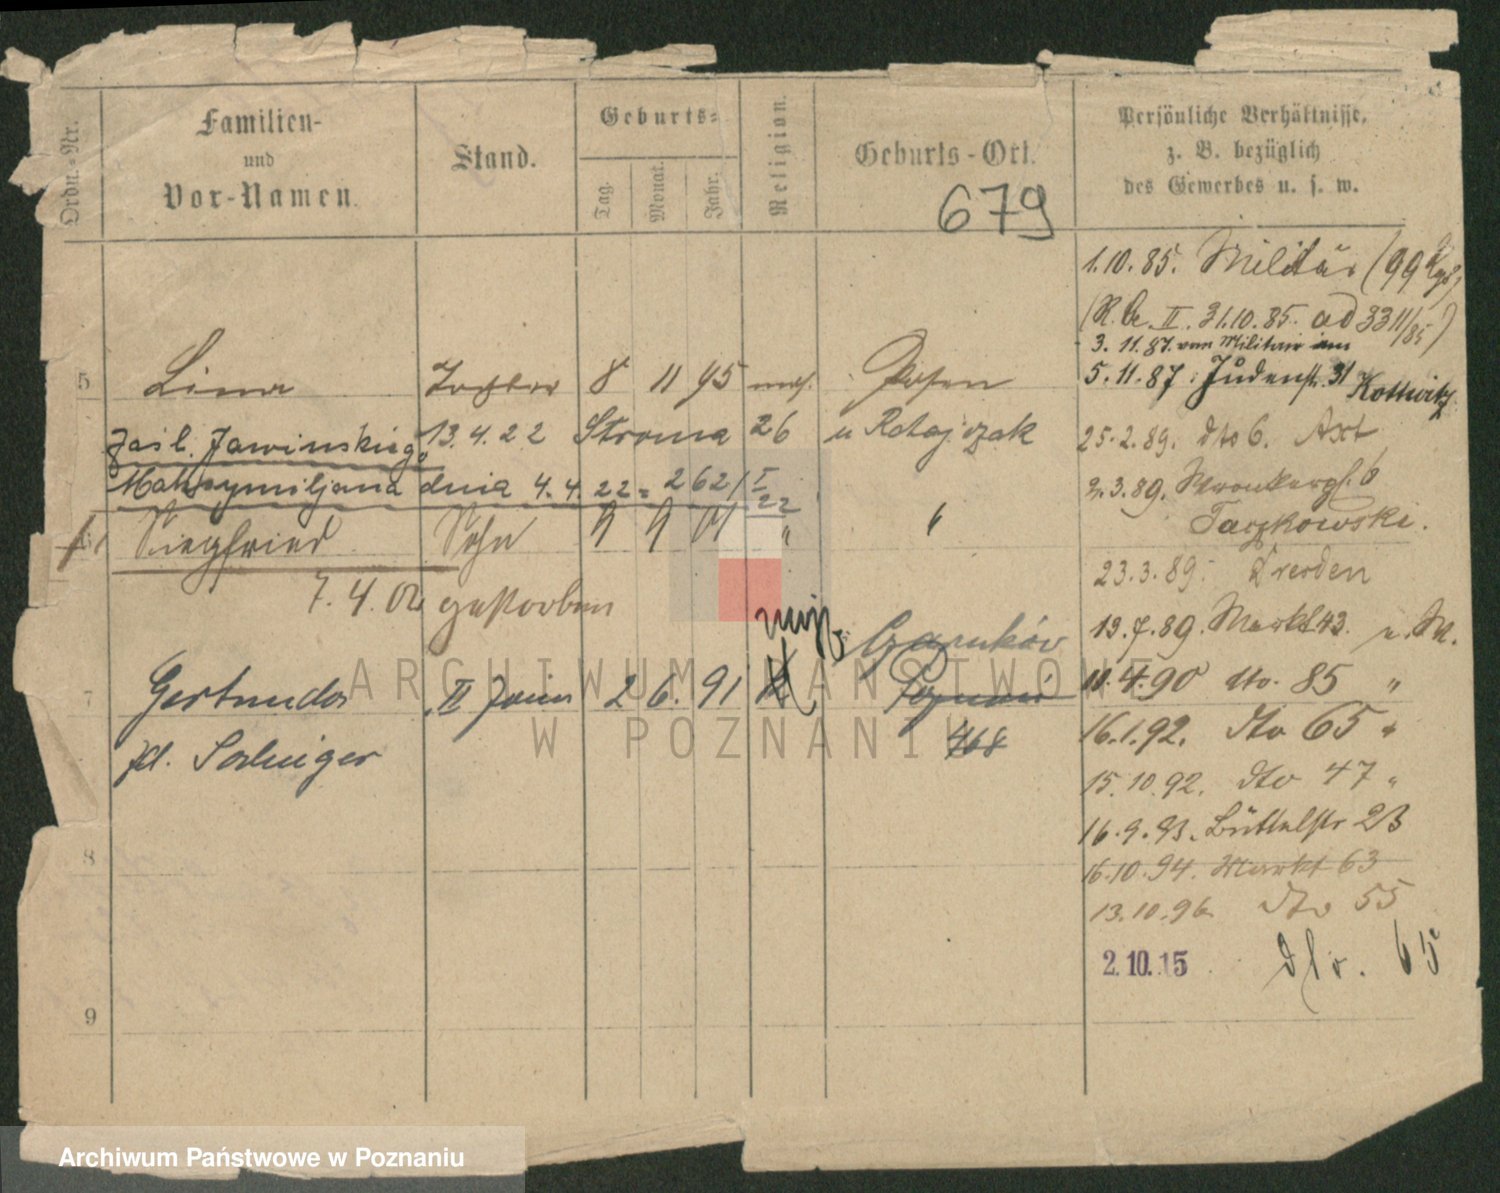 Ordn.-Nr.
Familien-
und
Vor-Namen.
Stand.
Geburts-
Tag.
Monat.
Jahr.
Religion.
Geburts-Ort.
679
Persönliche Verhältnisse,
z. B. bezüglich
des Gewerbes u. s. w.
1.10.85. Militär (99
(R. II. 31.10.85. ad 3311/85)
3. 11. 87. vom Militair
5. 11. 87. Judenstr. 31 Kottwitz
25.2.89. dto 6. Axt
2.3.89. 6
Taczkowski.
23.3.89. Dresden
19.7.89. Markt 43.
11.4.90 dto. 85 "
16.1.92. dto 65 "
15.10.92. dto 47 "
16.9.93. Büttelstr 23
16.10.94. Markt 63
13.10.96 dto 55
2.10.15 dto. 65
5 Lina Tochter 8 11 95 mos. Posen
zaśl. Jawinskiego 13.4.22 Stroma 26 u Ratajczak
Maksymiljana dnia 4.4.22 = 262/I 22
6 Siegfried Sohn " "
7.4.02 gestorben
mojż. Czarnków
7 Gertruda II 2 6. 91 Poznań
468
8
9
ARCHIWUM PAŃSTWOWE
W POZNANIU
Archiwum Państwowe w Poznaniu